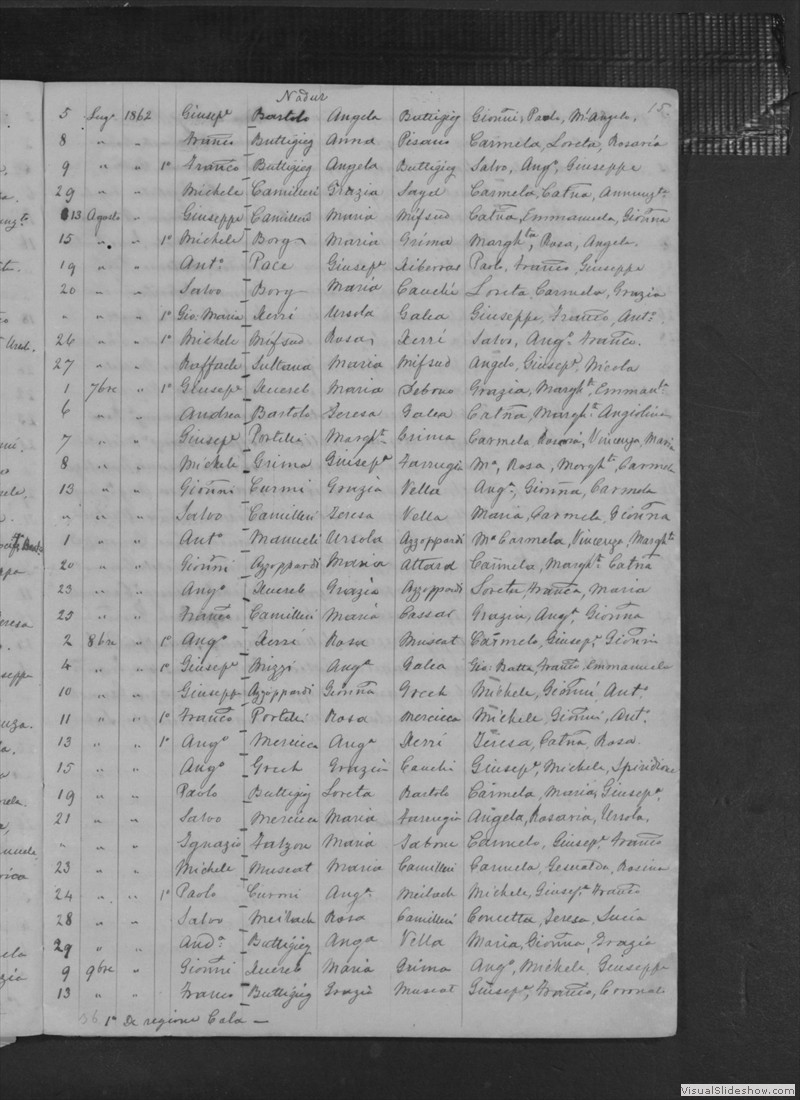 Nadur
15.
5 Lug.º 1862 Giusep.ª Bartolo Angela Buttigieg Gionni, Paolo, M.ª Angela,
8 " " Franco Buttigieg Anna Pisani Carmela, Loreta, Rosaria
9 " " 1º Franco Buttigieg Angela Buttigieg Salvo, Ang.º, Giuseppe
29 " " Michele Camilleri Grazia Sayd Carmela, Catna, Annunz.ta
13 Agosto " Giuseppe Camilleri Maria Mifsud Catna, Emmanuela, Gionna
15 " " 1º Michele Borg Maria Grima Margh.ta, Rosa, Angela
19 " " Ant.º Pace Giusep.ª Xiberras Paolo, Franco, Giuseppe
20 " " Salvo Borg Maria Cauchi Loreta, Carmela, Grazia
" " " 1º Gio: Maria Xerri Ursola Galea Giuseppe, Franco, Ant.º
26 " " 1º Michele Mifsud Rosa Xerri Salvo, Ang.º, Franco.
27 " " Raffaele Sultana Maria Mifsud Angelo, Giusep.ª, Nicola
1 7bre " 1º Giusep.ª Xuereb Maria Debono Grazia, Margh.ta, Emman.la
6 " Andrea Bartolo Teresa Galea Catna, Margh.ta Angiolina
7 " Giusep.ª Portelli Margh.ta Grima Carmela Rosaria, Vincenza, Maria
8 " " Michele Grima Giusep.ª Farrugia M.ª, Rosa, Margh.ta, Carmela
13 " " Gionni Curmi Grazia Vella Ang.ª, Gionna, Carmela
" " " Salvo Camilleri Teresa Vella Maria, Carmela, Gionna
1 " " Ant.º Manueli Ursola Azzoppardi M.ª Carmela, Vincenza, Margh.ta
20 " " Gionni Azzoppardi Maria Attard Carmela, Margh.ta Catna
23 " " Ang.º Xuereb Grazia Azzoppardi Loreta, Franca, Maria
25 " " Franco Camilleri Maria Cassar Grazia, Ang.ª, Gionna
2 8bre " 1º Ang.º Xerri Rosa Muscat Carmelo, Giusep.ª, Gionni
4 " " 1º Giusep.ª Mizzi Ang.ª Galea Gio: Batta, Franco, Emmanuele
10 " " Giuseppe Azzoppardi Gionna Grech Michele, Gionni, Ant.º
11 " " 1º Franco Portelli Rosa Mercieca Michele, Gionni, Ant.º
13 " " 1º Ang.º Mercieca Ang.ª Xerri Teresa, Catna, Rosa
15 " " Ang.º Grech Grazia Cauchi Giusep.ª, Michele, Spiridione
19 " " Paolo Buttigieg Loreta Bartolo Carmela, Maria, Giusep.ª
21 " " Salvo Mercieca Maria Farrugia Angela, Rosaria, Ursola,
" " " Ignazio Falzon Maria Sabone Carmelo, Giusep.ª, Franco
23 " " Michele Muscat Maria Camilleri Carmela, Rosina
24 " " 1º Paolo Curmi Ang.ª Meilach Michele, Giusep.ª, Franco
28 " " Salvo Meilach Rosa Camilleri Concetta, Teresa, Lucia
29 " " And.ª Buttigieg Anga Vella Maria, Gionna, Grazia
9 9bre " Gionni Xuereb Maria Grima Ang.º, Michele, Giuseppe
13 " " Franco Buttigieg Grazia Muscat Giusep.ª, Franco, Coronato
36 1º De regione Cala —
VisualSlideshow.com